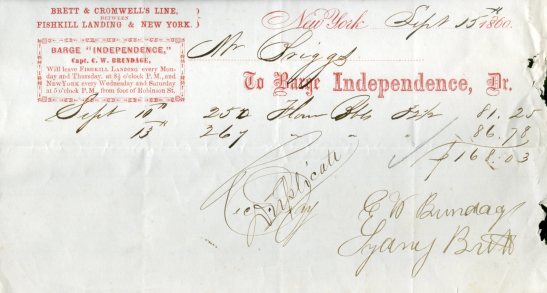 BRETT & CROMWELL'S LINE,
BETWEEN
FISHKILL LANDING & NEW YORK.
BARGE "INDEPENDENCE,"
Capt. C. W. BRUNDAGE,
Will leave FISHKILL LANDING every Mon-
day and Thursday, at 8½ o'clock P.M., and
NEW YORK every Wednesday and Saturday
at 5 o'clock P.M., from foot of Robinson St.
New York Sept 15th 1860.
Mr Briggs
To Barge Independence, Dr.
Sept 10th 250 Flour Bbls 81.25
13th 267 " " " 86.78
$168.03
Duplicate
Rec Pay
C W Bundag
Brett